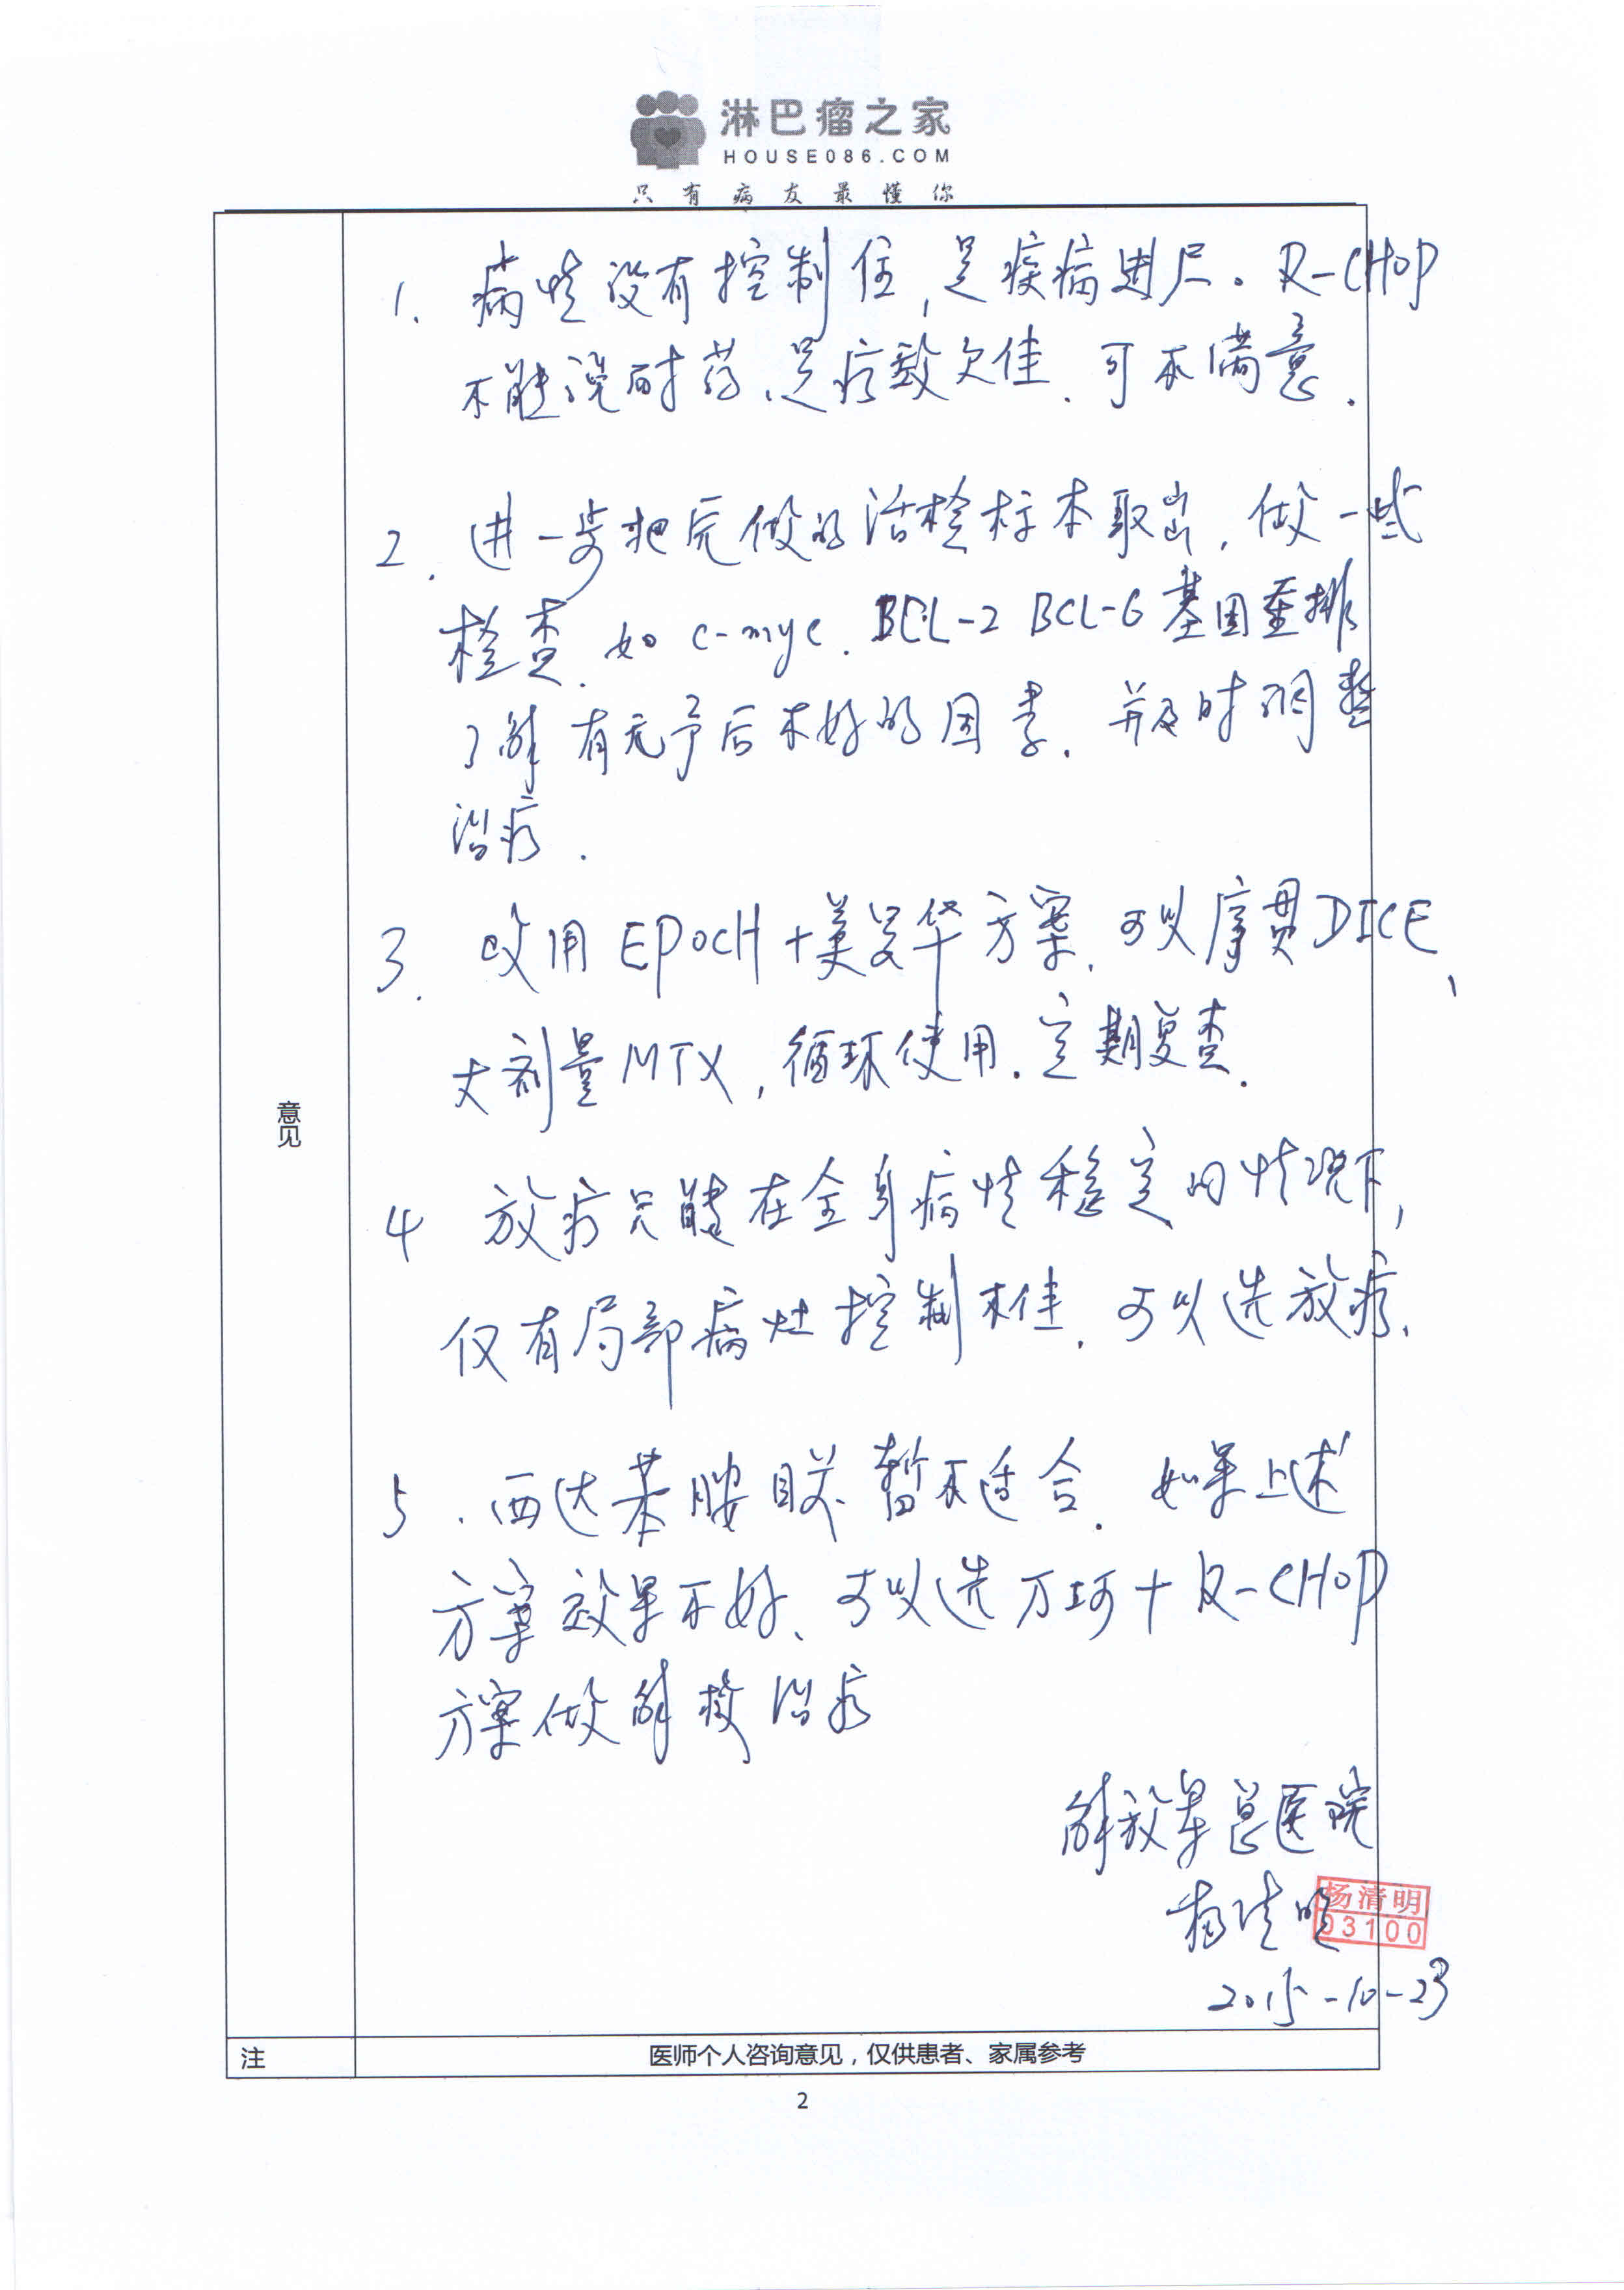 淋巴瘤之家
HOUSE086.COM
只有病友最懂你
1. 病情没有控制住,是疾病进尸。R-CHOP
不能说耐药、是疗效欠佳、可不满意.
2. 进一步把完做的活检标本取出,做一些
检查. 如 c-myc. BCL-2 BCL-6 基因重排
了解有无予后不好的因素. 并及时调整
治疗.
3. 改用 EPOCH + 美罗华方案, 可以序贯DICE、
大剂量MTX, 循环使用. 定期复查.
意见
4 放疗只能在全身病情稳定的情况下,
仅有局部病灶控制不佳. 可以选放疗.
5. 西达苯胺目前暂不适合. 如果上述
方案效果不好、可以选万珂 + R-CHOP
方案做解救治疗
解放军总医院
杨清明
杨清明
03100
2015-10-23
注 医师个人咨询意见,仅供患者、家属参考
2